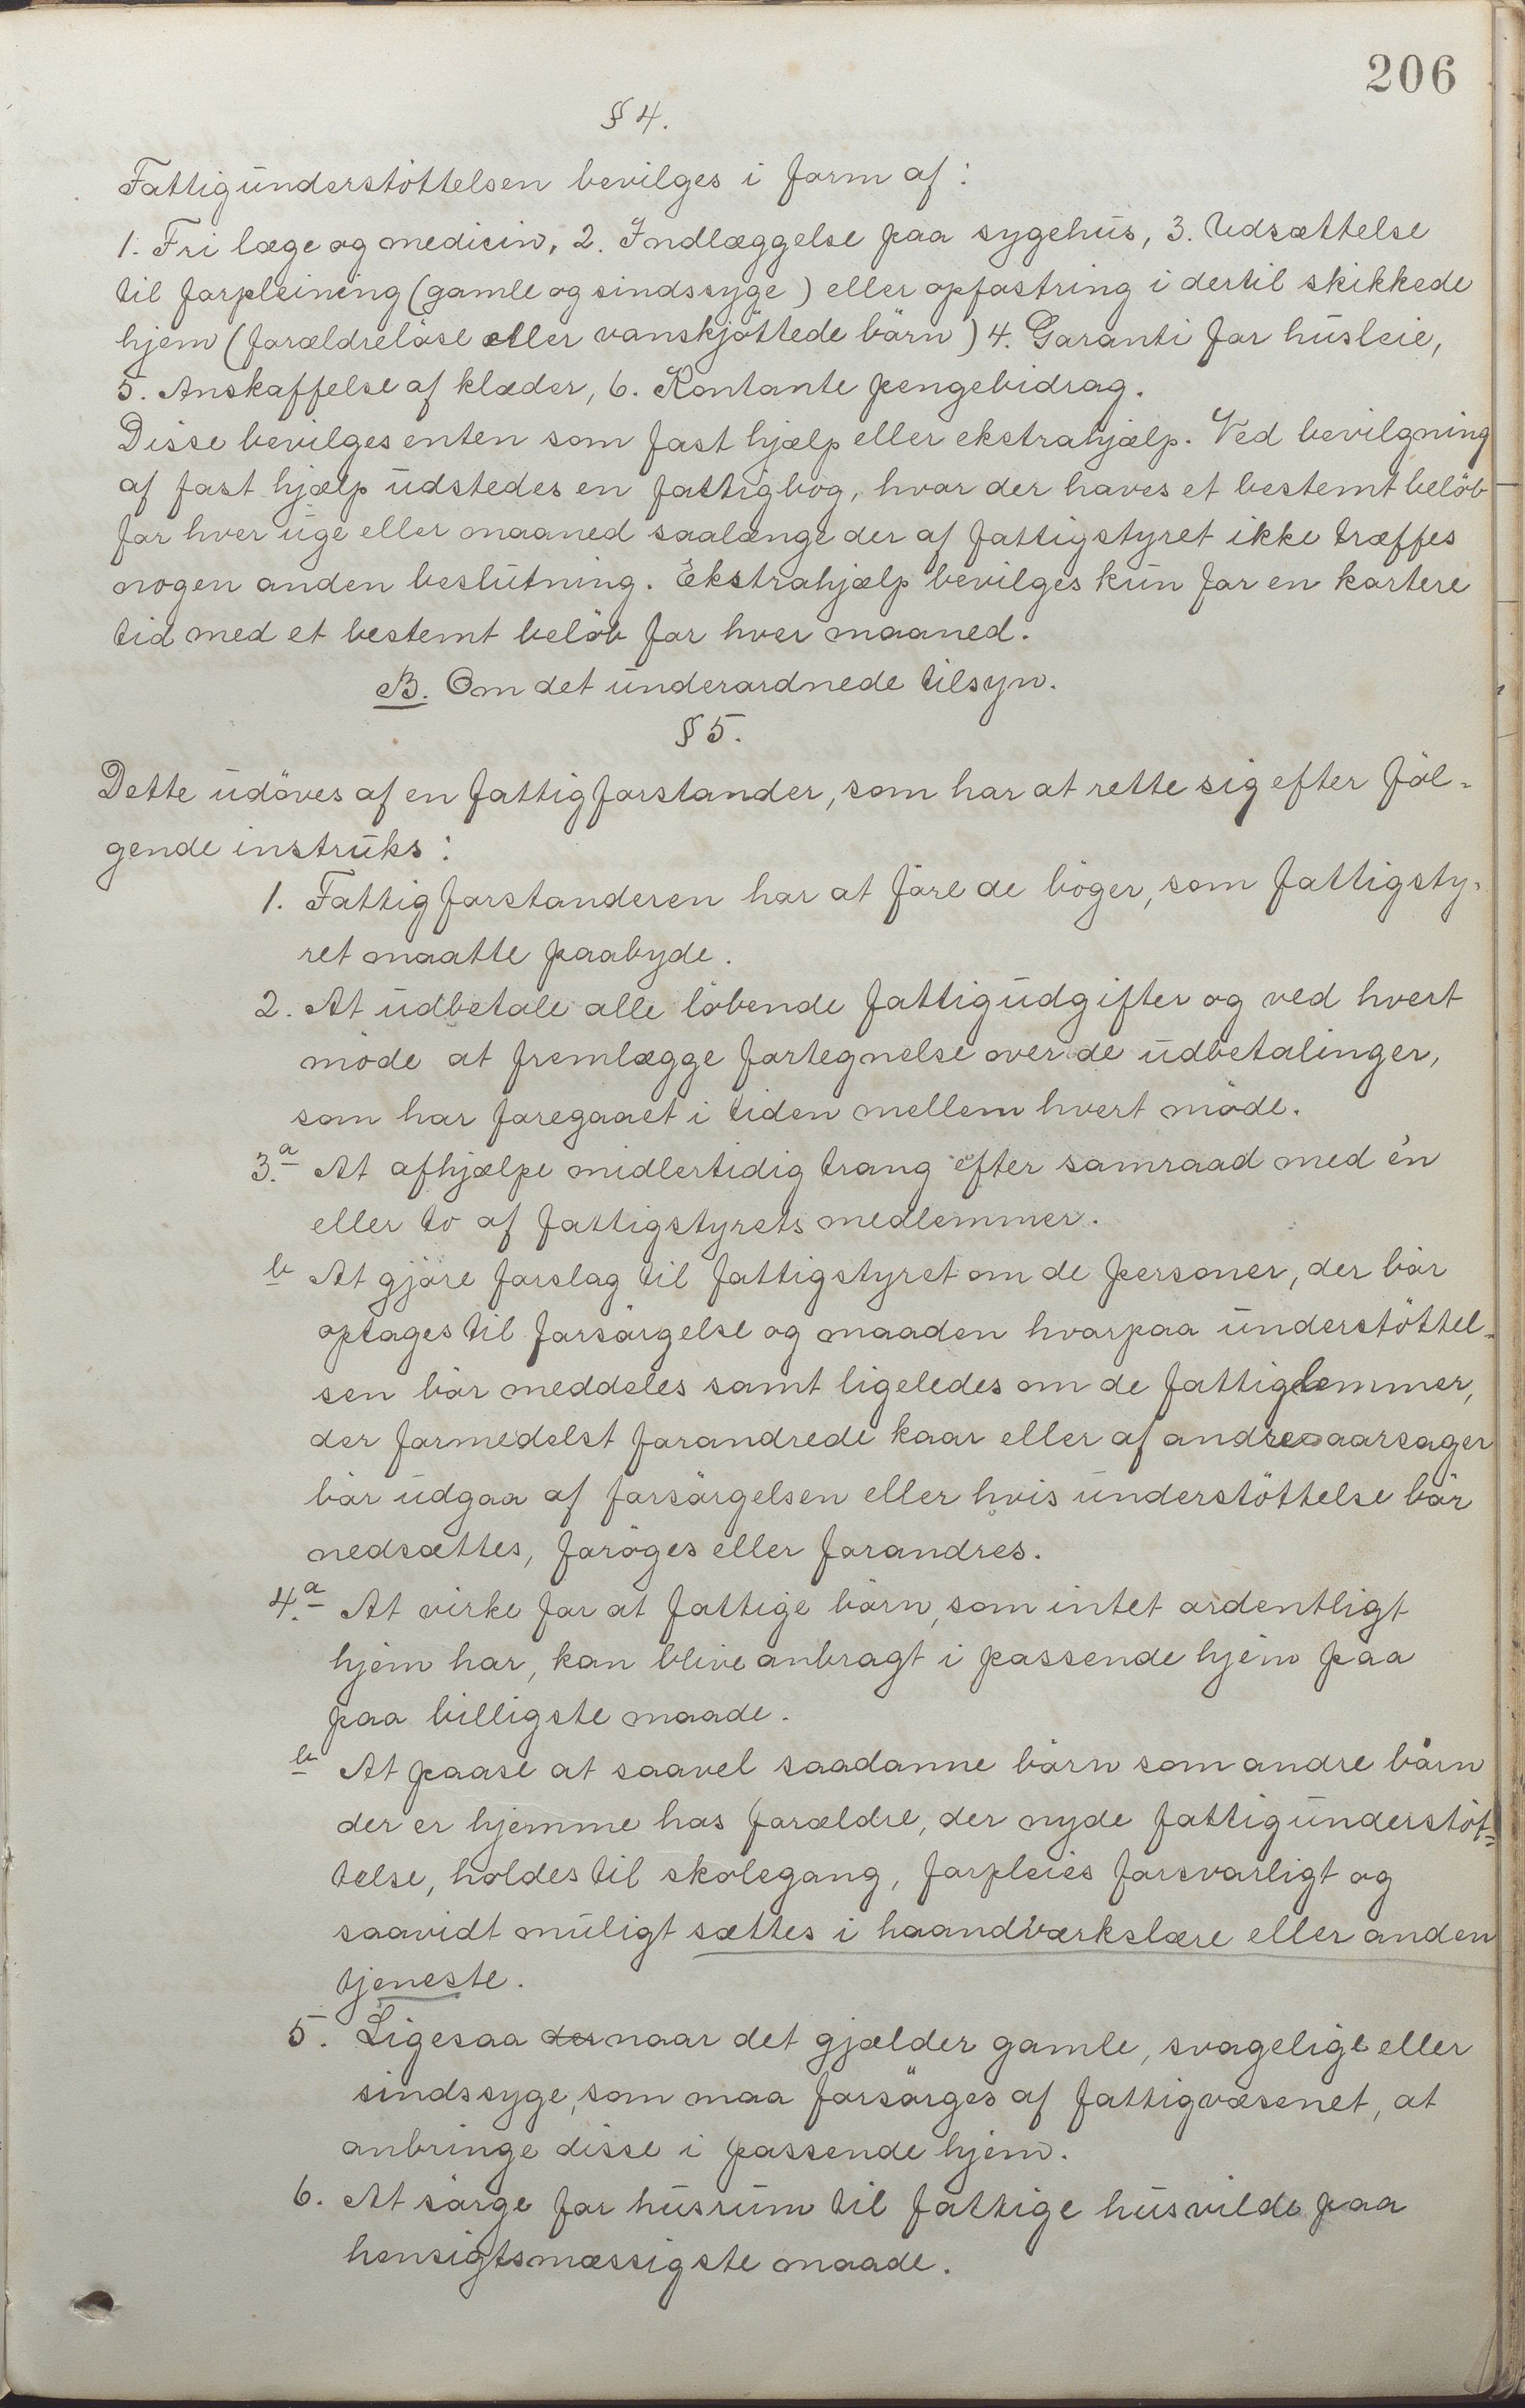 206
§ 4.
Fattigunderstöttelsen bevilges i form af:
1. Fri læge og medicin, 2. Indlæggelse paa sygehus, 3. Udsættelse
til forpleining (gamle og sindssyge) eller opfostring i dertil skikkede
hjem (forældreløse eller vanskjöttede börn) 4. Garanti for husleie,
5. Anskaffelse af klæder, 6. Kontante pengebidrag.
Disse bevilges enten som fast hjælp eller ekstrahjælp. Ved bevilgning
af fast hjælp udstedes en fattigbog, hvor der haves et bestemt belöb
for hver uge eller maaned saalænge der af fattigstyret ikke træffes
nogen anden beslutning. Ekstrahjælp bevilges kun for en kortere
tid med et bestemt belöb for hver maaned.
B. Om det underordnede tilsyn.
§ 5.
Dette udöves af en fattigforstander, som har at rette sig efter föl-
gende instruks:
1. Fattigforstanderen har at före de böger, som fattigsty-
ret maatte paabyde.
2. At udbetale alle löbende fattigudgifter og ved hvert
möde at fremlægge fortegnelse over de udbetalinger,
som har foregaaet i tiden mellem hvert möde.
3.a At afhjælpe midlertidig trang efter samraad med én
eller to af fattigstyrets medlemmer.
b At gjöre forslag til fattigstyret om de personer, der bör
optages til forsörgelse og maaden hvorpaa understöttel-
sen bör meddeles samt ligeledes om de fattiglemmer,
der formedelst forandrede kaar eller af andre aarsager
bör udgaa af forsörgelsen eller hvis understöttelse bör
nedsættes, foröges eller forandres.
4.a At virke for at fattige börn, som intet ordentligt
hjem har, kan blive anbragt i passende hjem paa
paa billigste maade.
b At paase at saavel saadanne börn som andre börn
der er hjemme hos forældre, der nyde fattigunderstöt-
telse, holdes til skolegang, forpleies forsvarligt og
saavidt muligt sættes i haandværkslære eller anden
tjeneste.
5. Ligesaa der naar det gjælder gamle, svagelige eller
sindssyge, som maa forsörges af fattigvæsenet, at
anbringe disse i passende hjem.
6. At sörge for husrum til fattige husvilde paa
hensigtsmæssigste maade.